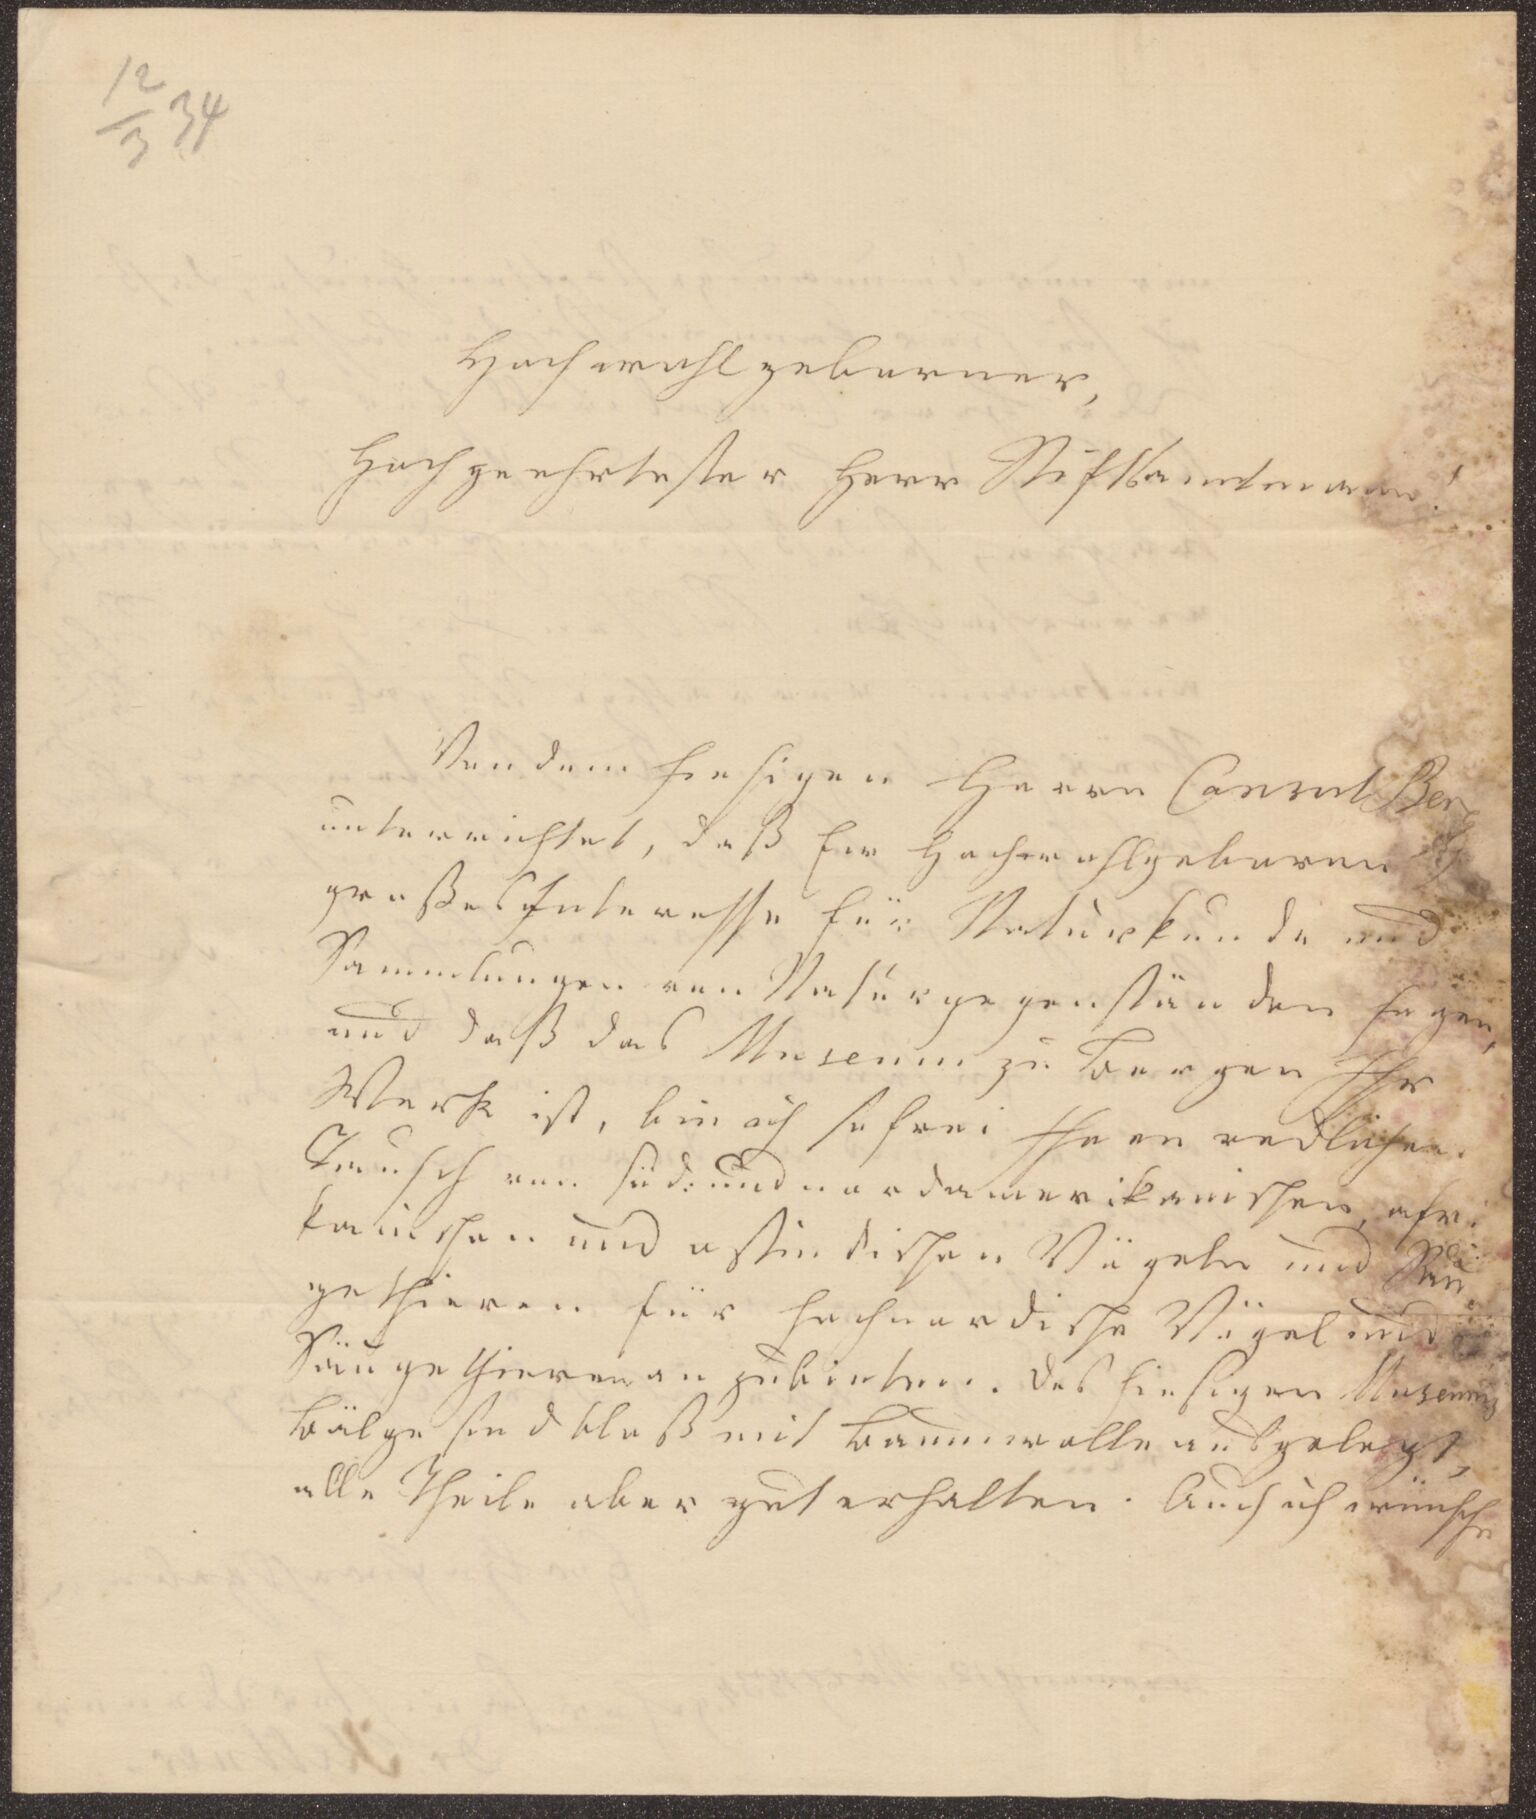 12/3 34
Hochwohlgeborner,
Hochgeehrtester Herr Stiftsamtmann!
Von dem hiesigen Herrn Consul
unterrichtet, daß Ew Hochwohlgeboren
großes Interesse für Naturkunde und
Sammlungen von Naturgegenständen hegen,
und daß das Museum zu Bergen Ihr
Werk ist, bin ich so frei Ihnen redlichen
Tausch von süd- und nordamerikanischen, afri
kanischen und ostindischen Vögeln und Säu
gethieren für hochnordische Vögel und
Säugethieren anzubieten. Des hiesigen Museums
Bälge sind bloß mit Baumwolle ausgelegt,
alle Theile aber gut erhalten. Auch ich wünsche